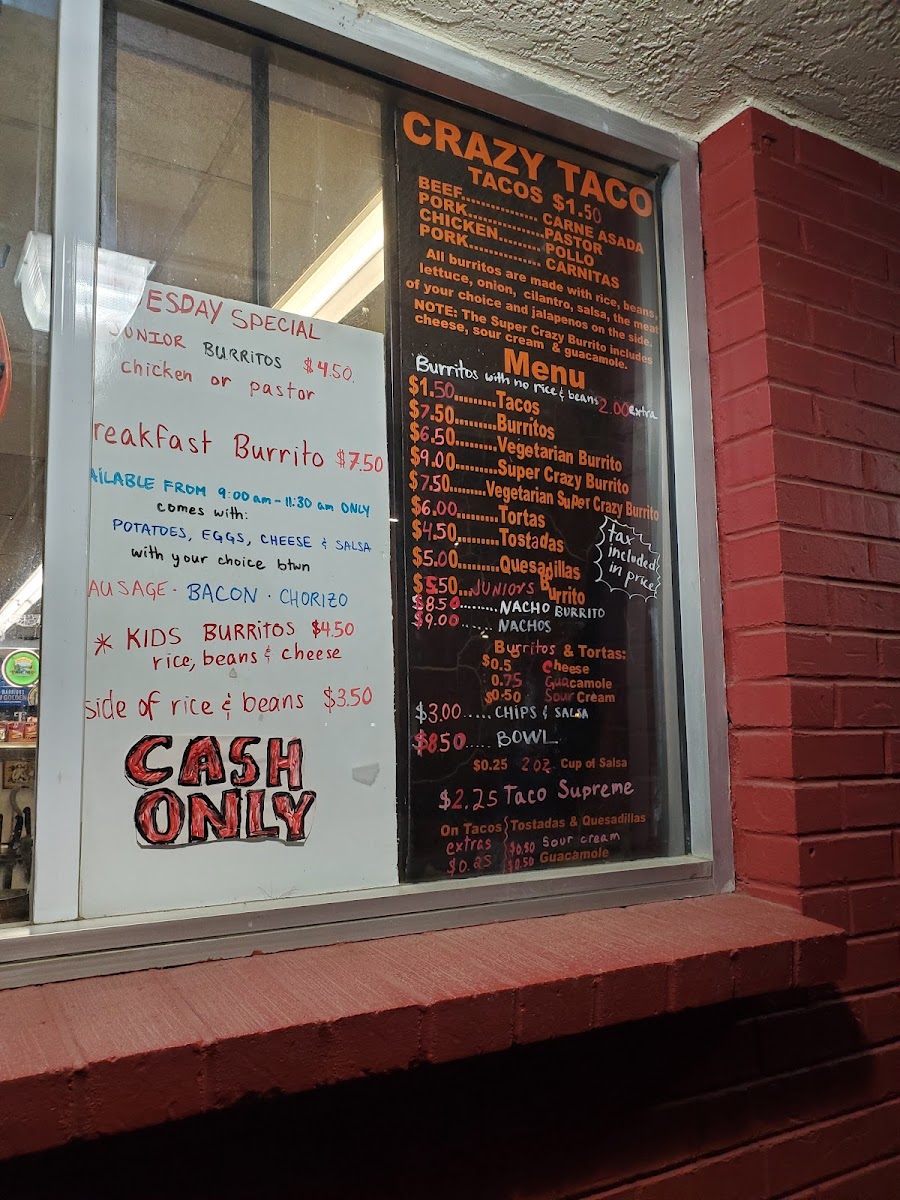 ESDAY SPECIAL
JUNIOR BURRITOS $4.50.
chicken or pastor
reakfast Burrito $7.50
AILABLE FROM 9:00 am - 11:30 am ONLY
comes with:
POTATOES, EGGS, CHEESE & SALSA
with your choice btwn
AUSAGE · BACON · CHORIZO
* KIDS BURRITOS $4.50
rice, beans & cheese
side of rice & beans $3.50
CASH
ONLY
CRAZY TACO
TACOS $1.50
BEEF................. CARNE ASADA
PORK.................PASTOR
CHICKEN.......... POLLO
PORK................ CARNITAS
All burritos are made with rice, beans,
lettuce, onion, cilantro, salsa, the meat
of your choice and jalapenos on the side.
NOTE: The Super Crazy Burrito includes
cheese, sour cream & guacamole.
Menu
Burritos with no rice & beans 2.00 extra
$1.50.........Tacos
$7.50.........Burritos
$6.50.........Vegetarian Burrito
$9.00.........Super Crazy Burrito
$7.50........Vegetarian Super Crazy Burrito
$6.00.........Tortas
$4.50.........Tostadas
$5.00.........Quesadillas
$5.50...JUNIORS Burrito
$8.50.........NACHO BURRITO
$9.00......NACHOS
tax
included
in price
Burritos & Tortas:
$0.5 Cheese
0.75 Guacamole
$0.50 Sour Cream
$3.00.....CHIPS & SALSA
$8.50.....BOWL
$0.25 2 oz. Cup of Salsa
$2.25 Taco Supreme
On Tacos Tostadas & Quesadillas
extras $0.50 sour cream
$0.25 $0.50 Guacamole